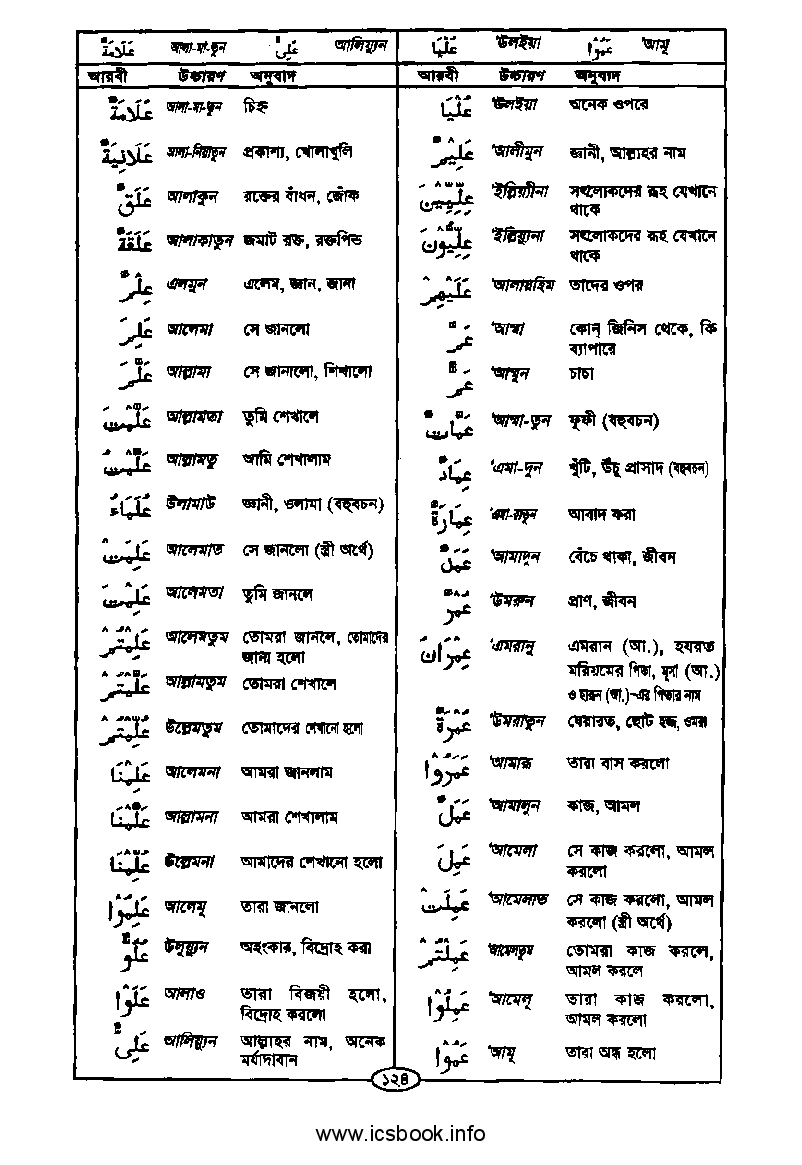 عَلَامَةٌ আলা-মা-তুন عَلِىٌّ আলিয়্যুন
আরবী উচ্চারণ অনুবাদ
عَلَامَةٌ আলা-মা-তুন চিহ্ন
عَلَانِيَةٌ আলা-নিয়াতুন প্রকাশ্য, খোলাখুলি
عَلَقٌ আলাকুন রক্তের বাঁধন, জোঁক
عَلَقَةٌ আলাকাতুন জমাট রক্ত, রক্তপিন্ড
عِلْمٌ এলমুন এলেম, জ্ঞান, জানা
عَلِمَ আলেমা সে জানলো
عَلَّمَ আল্লামা সে জানালো, শিখালো
عَلَّمْتَ আল্লামতা তুমি শেখালে
عَلَّمْتُ আল্লামতু আমি শেখালাম
عُلَمَاءُ উলামাউ জ্ঞানী, ওলামা (বহুবচন)
عَلِمَتْ আলেমাত সে জানলো (স্ত্রী অর্থে)
عَلِمْتَ আলেমতা তুমি জানলে
عَلِمْتُمْ আলেমতুম তোমরা জানলে, তোমাদের
জানা হলো
عَلَّمْتُمْ আল্লামতুম তোমরা শেখালে
عُلِّمْتُمْ উল্লেমতুম তোমাদের শেখানো হলো
عَلِمْنَا আলেমনা আমরা জানলাম
عَلَّمْنَا আল্লামনা আমরা শেখালাম
عُلِّمْنَا উল্লেমনা আমাদের শেখানো হলো
عَلِمُوْا আলেমু তারা জানলো
عُلُوٌّ উলূয়্যুন অহংকার, বিদ্রোহ করা
عَلَوْا আলাও তারা বিজয়ী হলো,
বিদ্রোহ করলো
عَلِىٌّ আলিয়্যুন আল্লাহর নাম, অনেক
মর্যাদাবান
عُلْيَا 'উলইয়া عَمُوْا 'আমূ
আরবী উচ্চারণ অনুবাদ
عُلْيَا 'উলইয়া অনেক ওপরে
عَلِيْمٌ 'আলীমুন জ্ঞানী, আল্লাহর নাম
عِلِّيِّيْنَ 'ইল্লিয়্যীনা সৎলোকদের রূহ যেখানে
থাকে
عِلِّيُّوْنَ 'ইল্লিয়্যুনা সৎলোকদের রূহ যেখানে
থাকে
عَلَيْهِمْ 'আলায়হিম তাদের ওপর
عَمَّ 'আম্মা কোন্ জিনিস থেকে, কি
ব্যাপারে
عَمٌّ 'আম্মুন চাচা
عَمَّاتٌ 'আম্মা-তুন ফূফী (বহুবচন)
عِمَادٌ 'এমা-দুন খুঁটি, উঁচু প্রাসাদ (বহুবচন)
عِمَارَةٌ 'এমা-রাতুন আবাদ করা
عَمَدٌ 'আমাদুন বেঁচে থাকা, জীবন
عُمُرٌ 'উমরুন প্রাণ, জীবন
عِمْرَانَ 'এমরানু এমরান (আ.), হযরত
মরিয়মের পিতা, মূসা (আ.)
ও হারুন (আ.)-এর পিতার নাম
عُمْرَةٌ 'উমরাতুন যেয়ারত, ছোট হজ্জ, ওমরা
عَمَرُوْا 'আমারূ তারা বাস করলো
عَمَلٌ 'আমালুন কাজ, আমল
عَمِلَ 'আমেলা সে কাজ করলো, আমল
করলো
عَمِلَتْ 'আমেলাত সে কাজ করলো, আমল
করলো (স্ত্রী অর্থে)
عَمِلْتُمْ 'আমেলতুম তোমরা কাজ করলে,
আমল করলে
عَمِلُوْا 'আমেলু তারা কাজ করলো,
আমল করলো
عَمُوْا 'আমূ তারা অন্ধ হলো
১২৪
www.icsbook.info